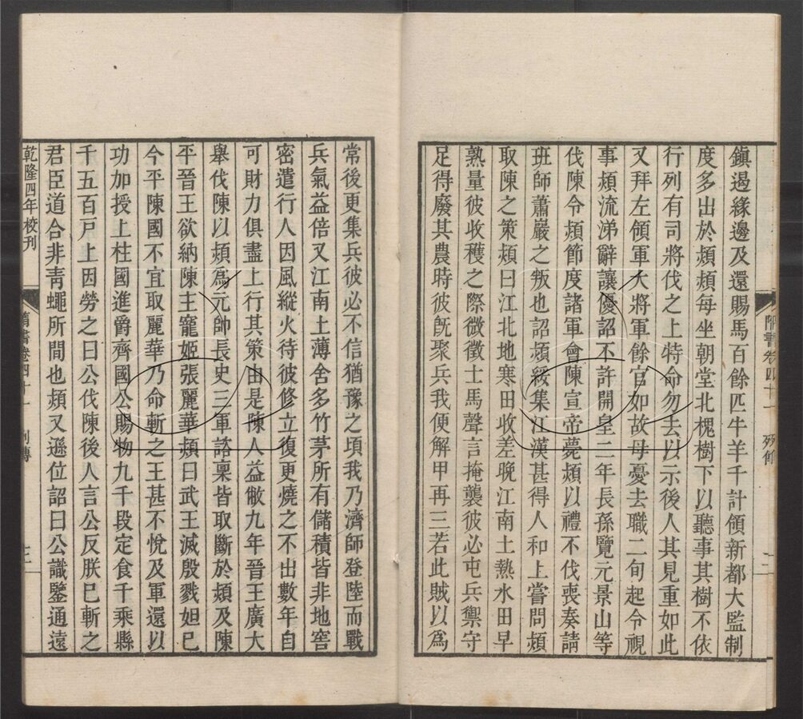 鎮遏緣邊及還賜馬百餘匹牛羊千計領新都大監制
度多出於熲熲每坐朝堂北槐樹下以聽事其樹不依
行列有司將伐之上特命勿去以示後人其見重如此
又拜左領軍大將軍餘官如故母憂去職二旬起令視
事熲流涕辭讓優詔不許開皇二年長孫覽元景山等
伐陳令熲節度諸軍會陳宣帝薨熲以禮不伐喪奏請
班師蕭巖之叛也詔熲綏集江漢甚得人和上嘗問熲
取陳之策熲曰江北地寒田收差晚江南土熱水田早
熟量彼收穫之際微徵士馬聲言掩襲彼必屯兵禦守
足得廢其農時彼旣聚兵我便解甲再三若此賊以爲
隋書卷四十一 列傳
常後更集兵彼必不信猶豫之頃我乃濟師登陸而戰
兵氣益倍又江南土薄舍多竹茅所有儲積皆非地窖
密遣行人因風縱火待彼修立復更燒之不出數年自
可財力俱盡上行其策由是陳人益敝九年晉王廣大
舉伐陳以熲爲元帥長史三軍諮稟皆取斷於熲及陳
平晉王欲納陳主寵姬張麗華熲曰武王滅殷戮妲己
今平陳國不宜取麗華乃命斬之王甚不悅及軍還以
功加授上柱國進爵齊國公賜物九千段定食千乘縣
千五百戶上因勞之曰公伐陳後人言公反朕已斬之
君臣道合非靑蠅所間也熲又遜位詔曰公識鑒通遠
乾隆四年校刊
隋書卷四十一 列傳